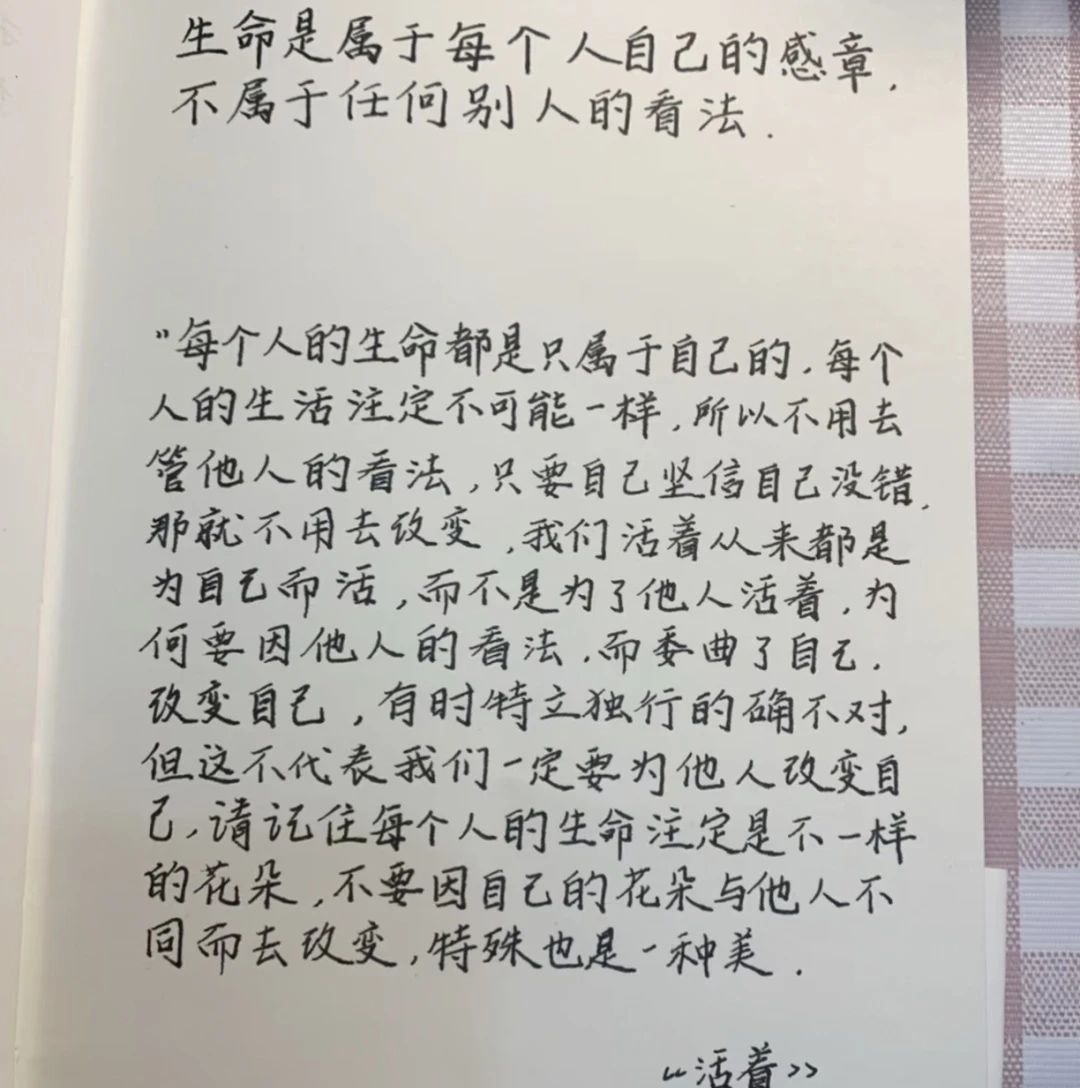 生命是属于每个人自己的感章,
不属于任何别人的看法.
"每个人的生命都是只属于自己的.每个
人的生活注定不可能一样,所以不用去
管他人的看法,只要自己坚信自己没错,
那就不用去改变,我们活着从来都是
为自己而活,而不是为了他人活着,为
何要因他人的看法.而委曲了自己.
改变自己,有时特立独行的确不对,
但这不代表我们一定要为他人改变自
己,请记住每个人的生命注定是不一样
的花朵,不要因自己的花朵与他人不
同而去改变,特殊也是一种美.
《活着》